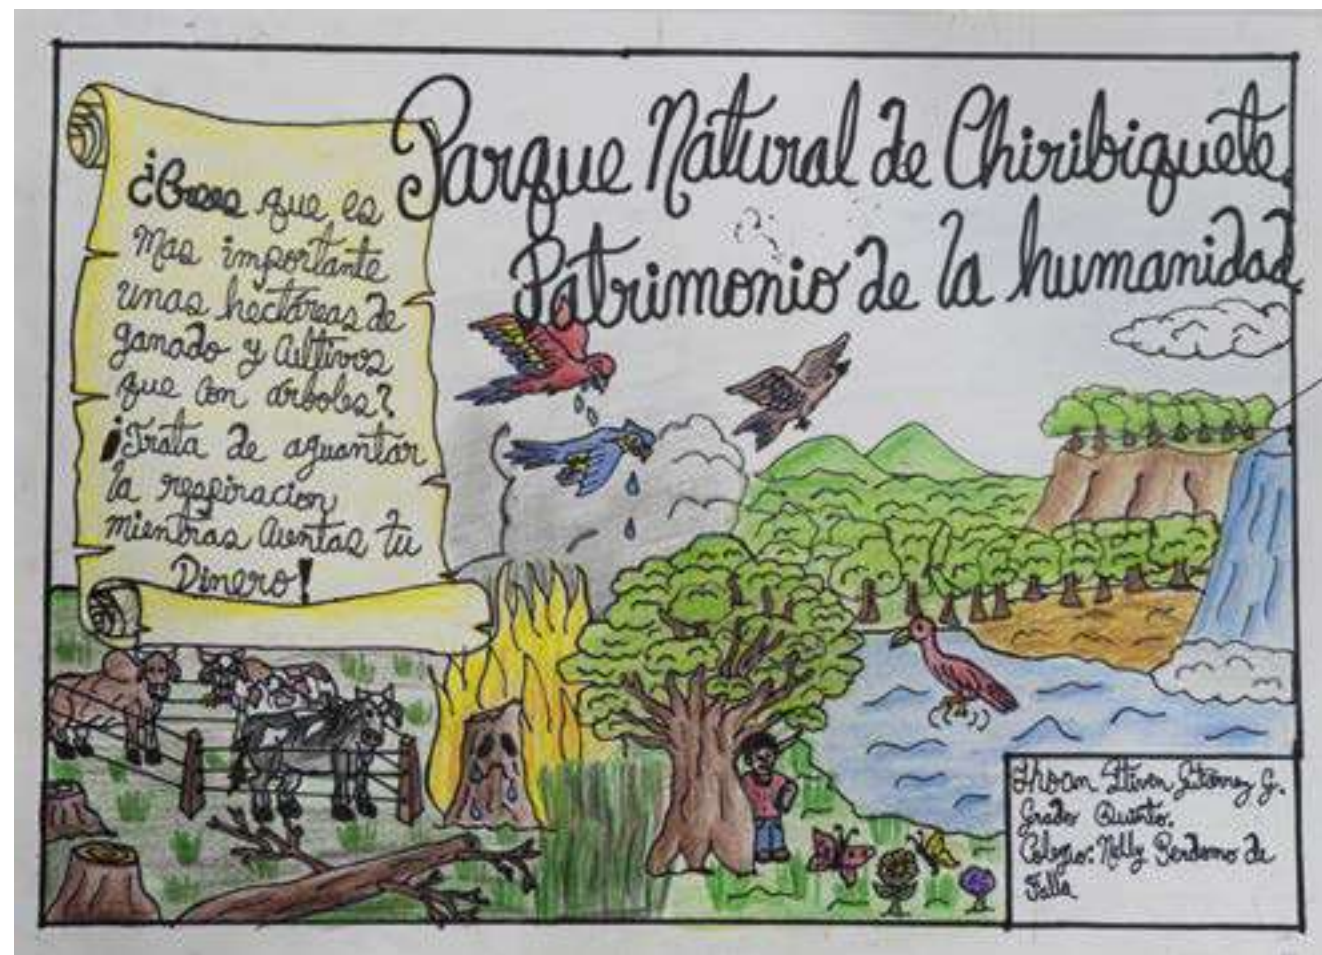 Parque Natural de Chiribiquete,
Patrimonio de la humanidad
¿Crees que es
Mas importante
unas hectáreas de
ganado y Cultivos
que con árboles?
¡Trata de aguantar
la respiracion
mientras Cuentas tu
Dinero!
Stiven Gutiérrez G.
Grado Quinto.
Colegio: Nelly Berdomo de
Falla